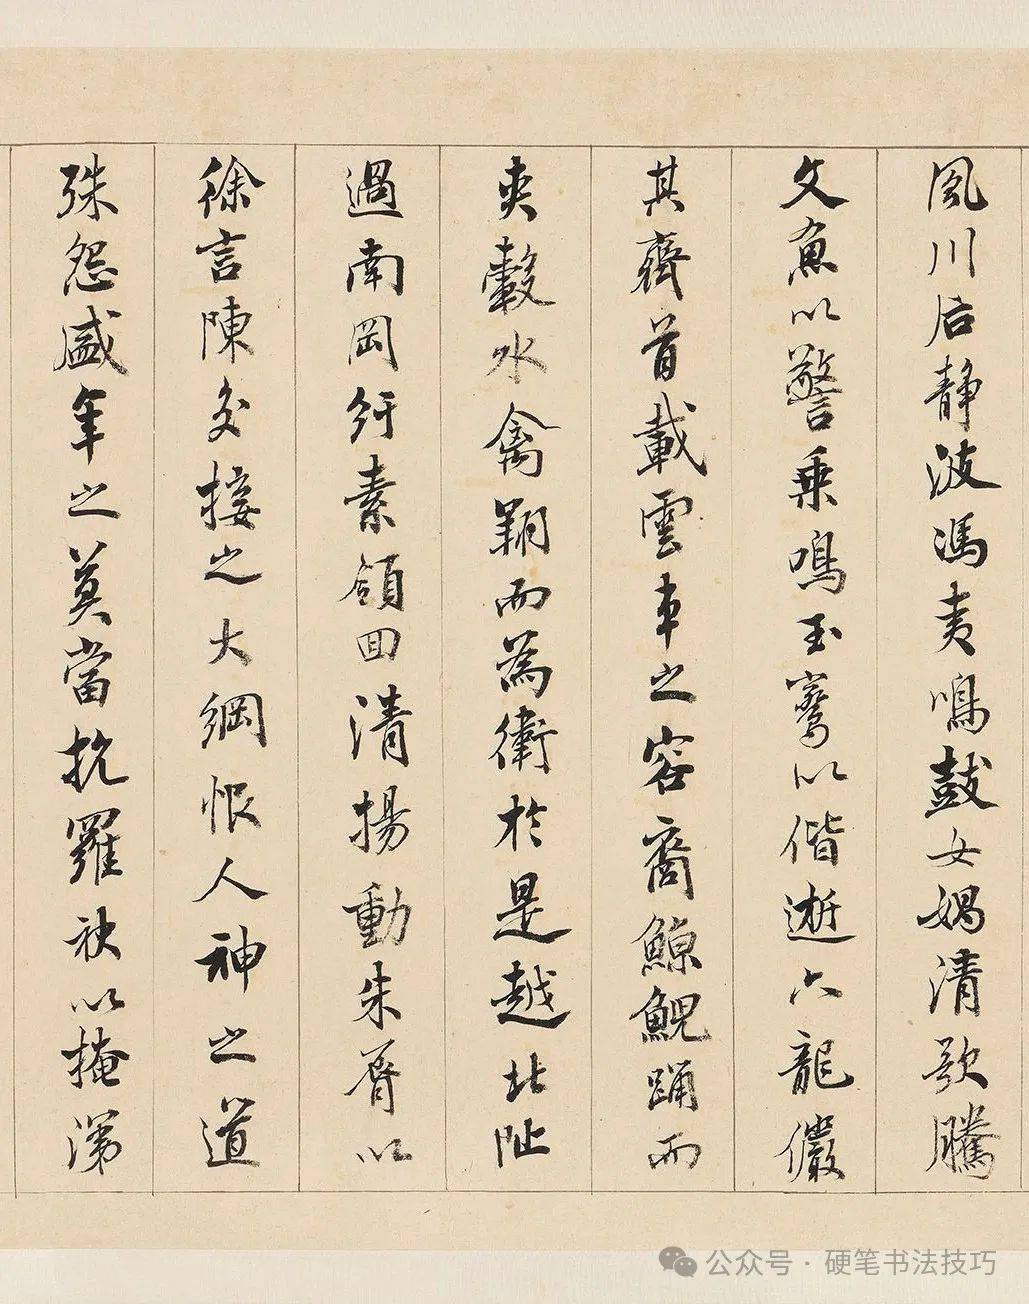 風川后静波馮夷鳴鼓女媧清歌騰
文魚以警乗鳴玉鸞以偕逝六龍儼
其齊首載雲車之容裔鯨鯢踊而
夾轂水禽翔而為衛於是越北阯
過南岡紆素領回清揚動朱脣以
徐言陳交接之大綱恨人神之道
殊怨盛年之莫當抗羅袂以掩涕
公众号·硬笔书法技巧